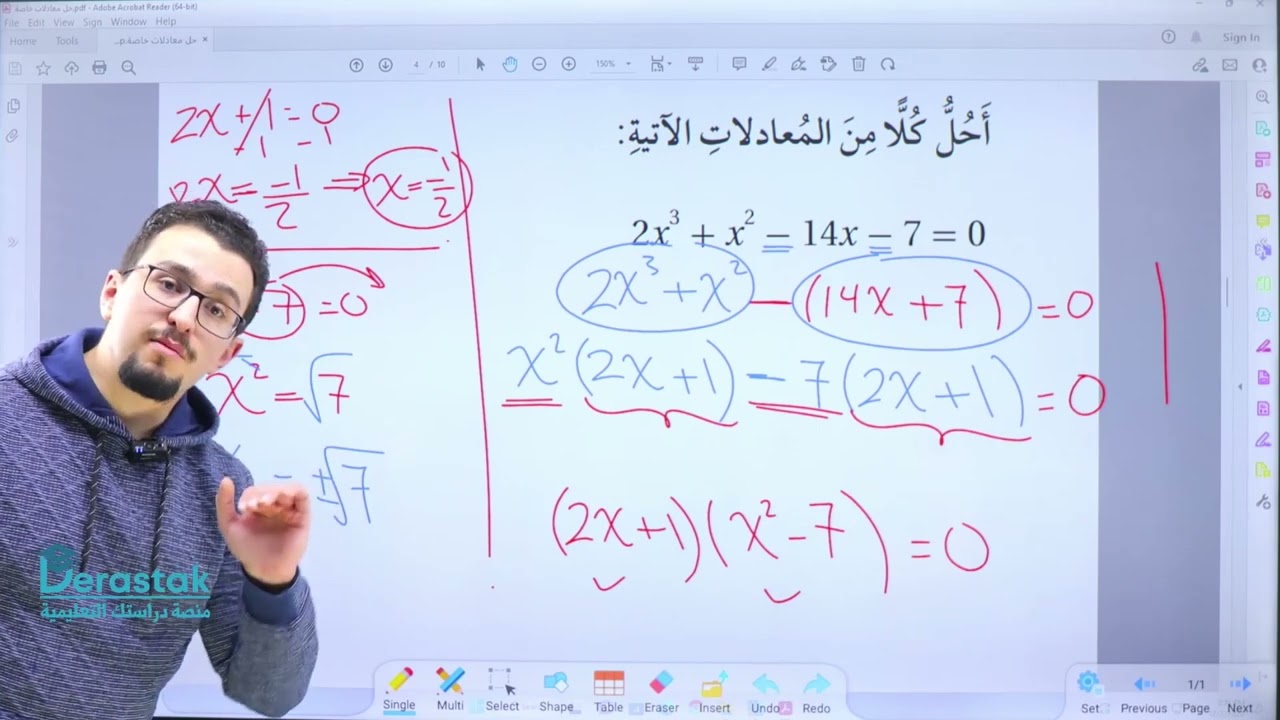 حل معادلات خاصة.pdf - Adobe Acrobat Reader (64-bit)
File Edit View Sign Window Help
Home Tools حل معادلات خاصة.p... × Sign In
4 / 10 150%
أَحُلُّ كُلًّا مِنَ المُعادلاتِ الآتيةِ:
2x³ + x² − 14x − 7 = 0
2x³ + x² − (14x + 7) = 0
x²(2x + 1) − 7(2x + 1) = 0
(2x+1)(x² − 7) = 0
2x + 1 = 0
-1 -1
x = -1/2 ⇒ x = -1/2
7 = 0
x² = √7
= ±√7
Derastak
منصة دراستك التعليمية
Single Multi Select Shape Table Eraser Insert Undo Redo
Set Previous 1/1 Page Next